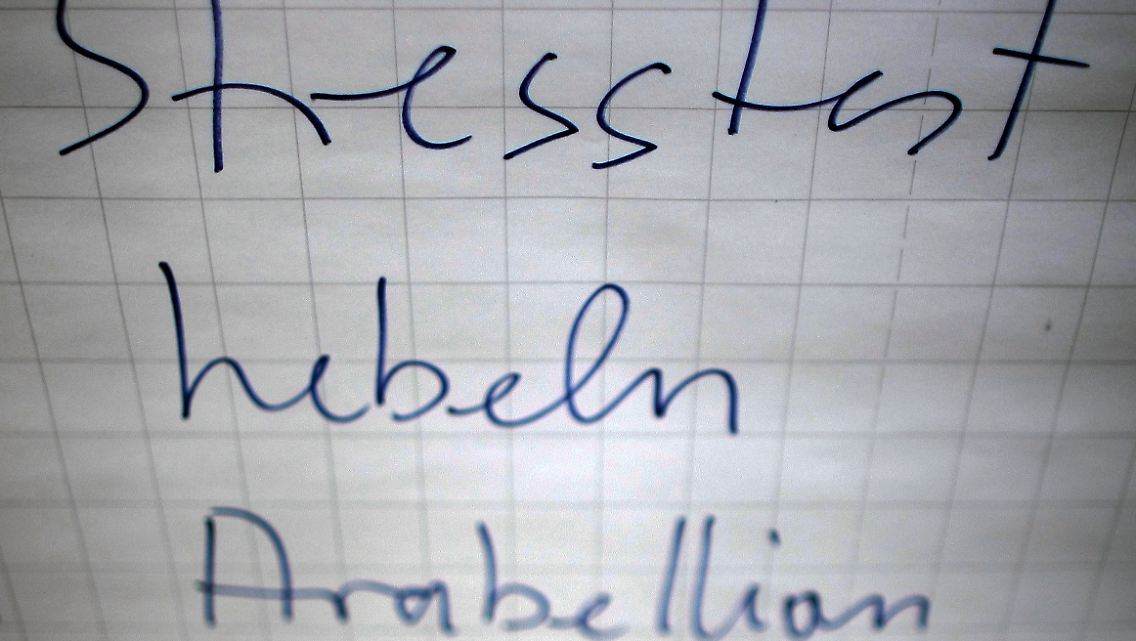 Stresstest
hebeln
Arabellian